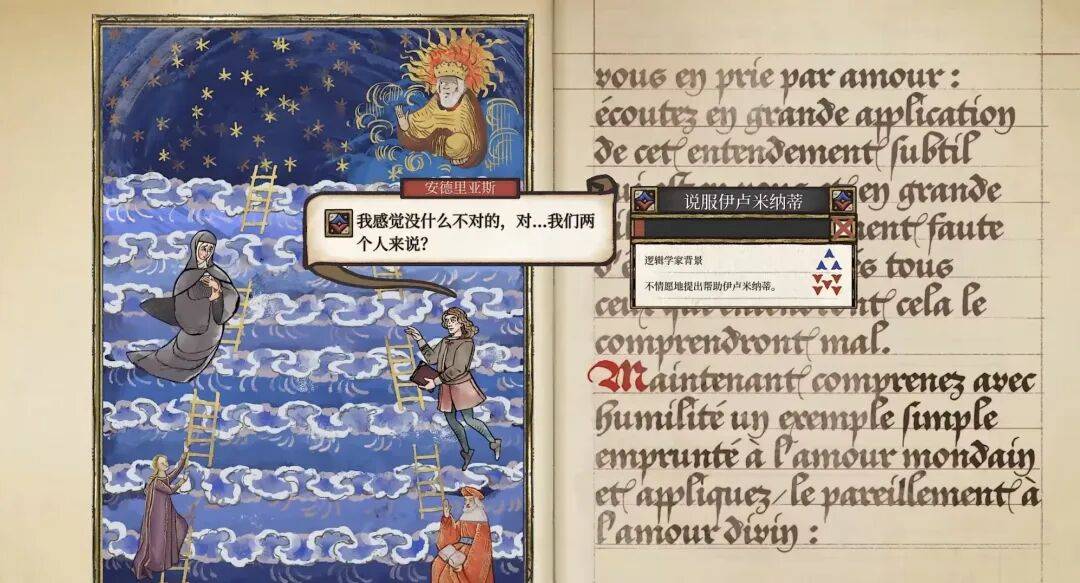 安德里亚斯
我感觉没什么不对的，对...我们两
个人来说？
说服伊卢米纳蒂
逻辑学家背景
不情愿地提出帮助伊卢米纳蒂。
vous en prie par amour :
écoutez en grande application
de cet entendement subtil
en grande
ment faute
s tous
cela le
comprendront mal.
Maintenant comprenez avec
humilité un exemple simple
emprunté à l'amour mondain
et appliquez/le pareillement à
l'amour divin :